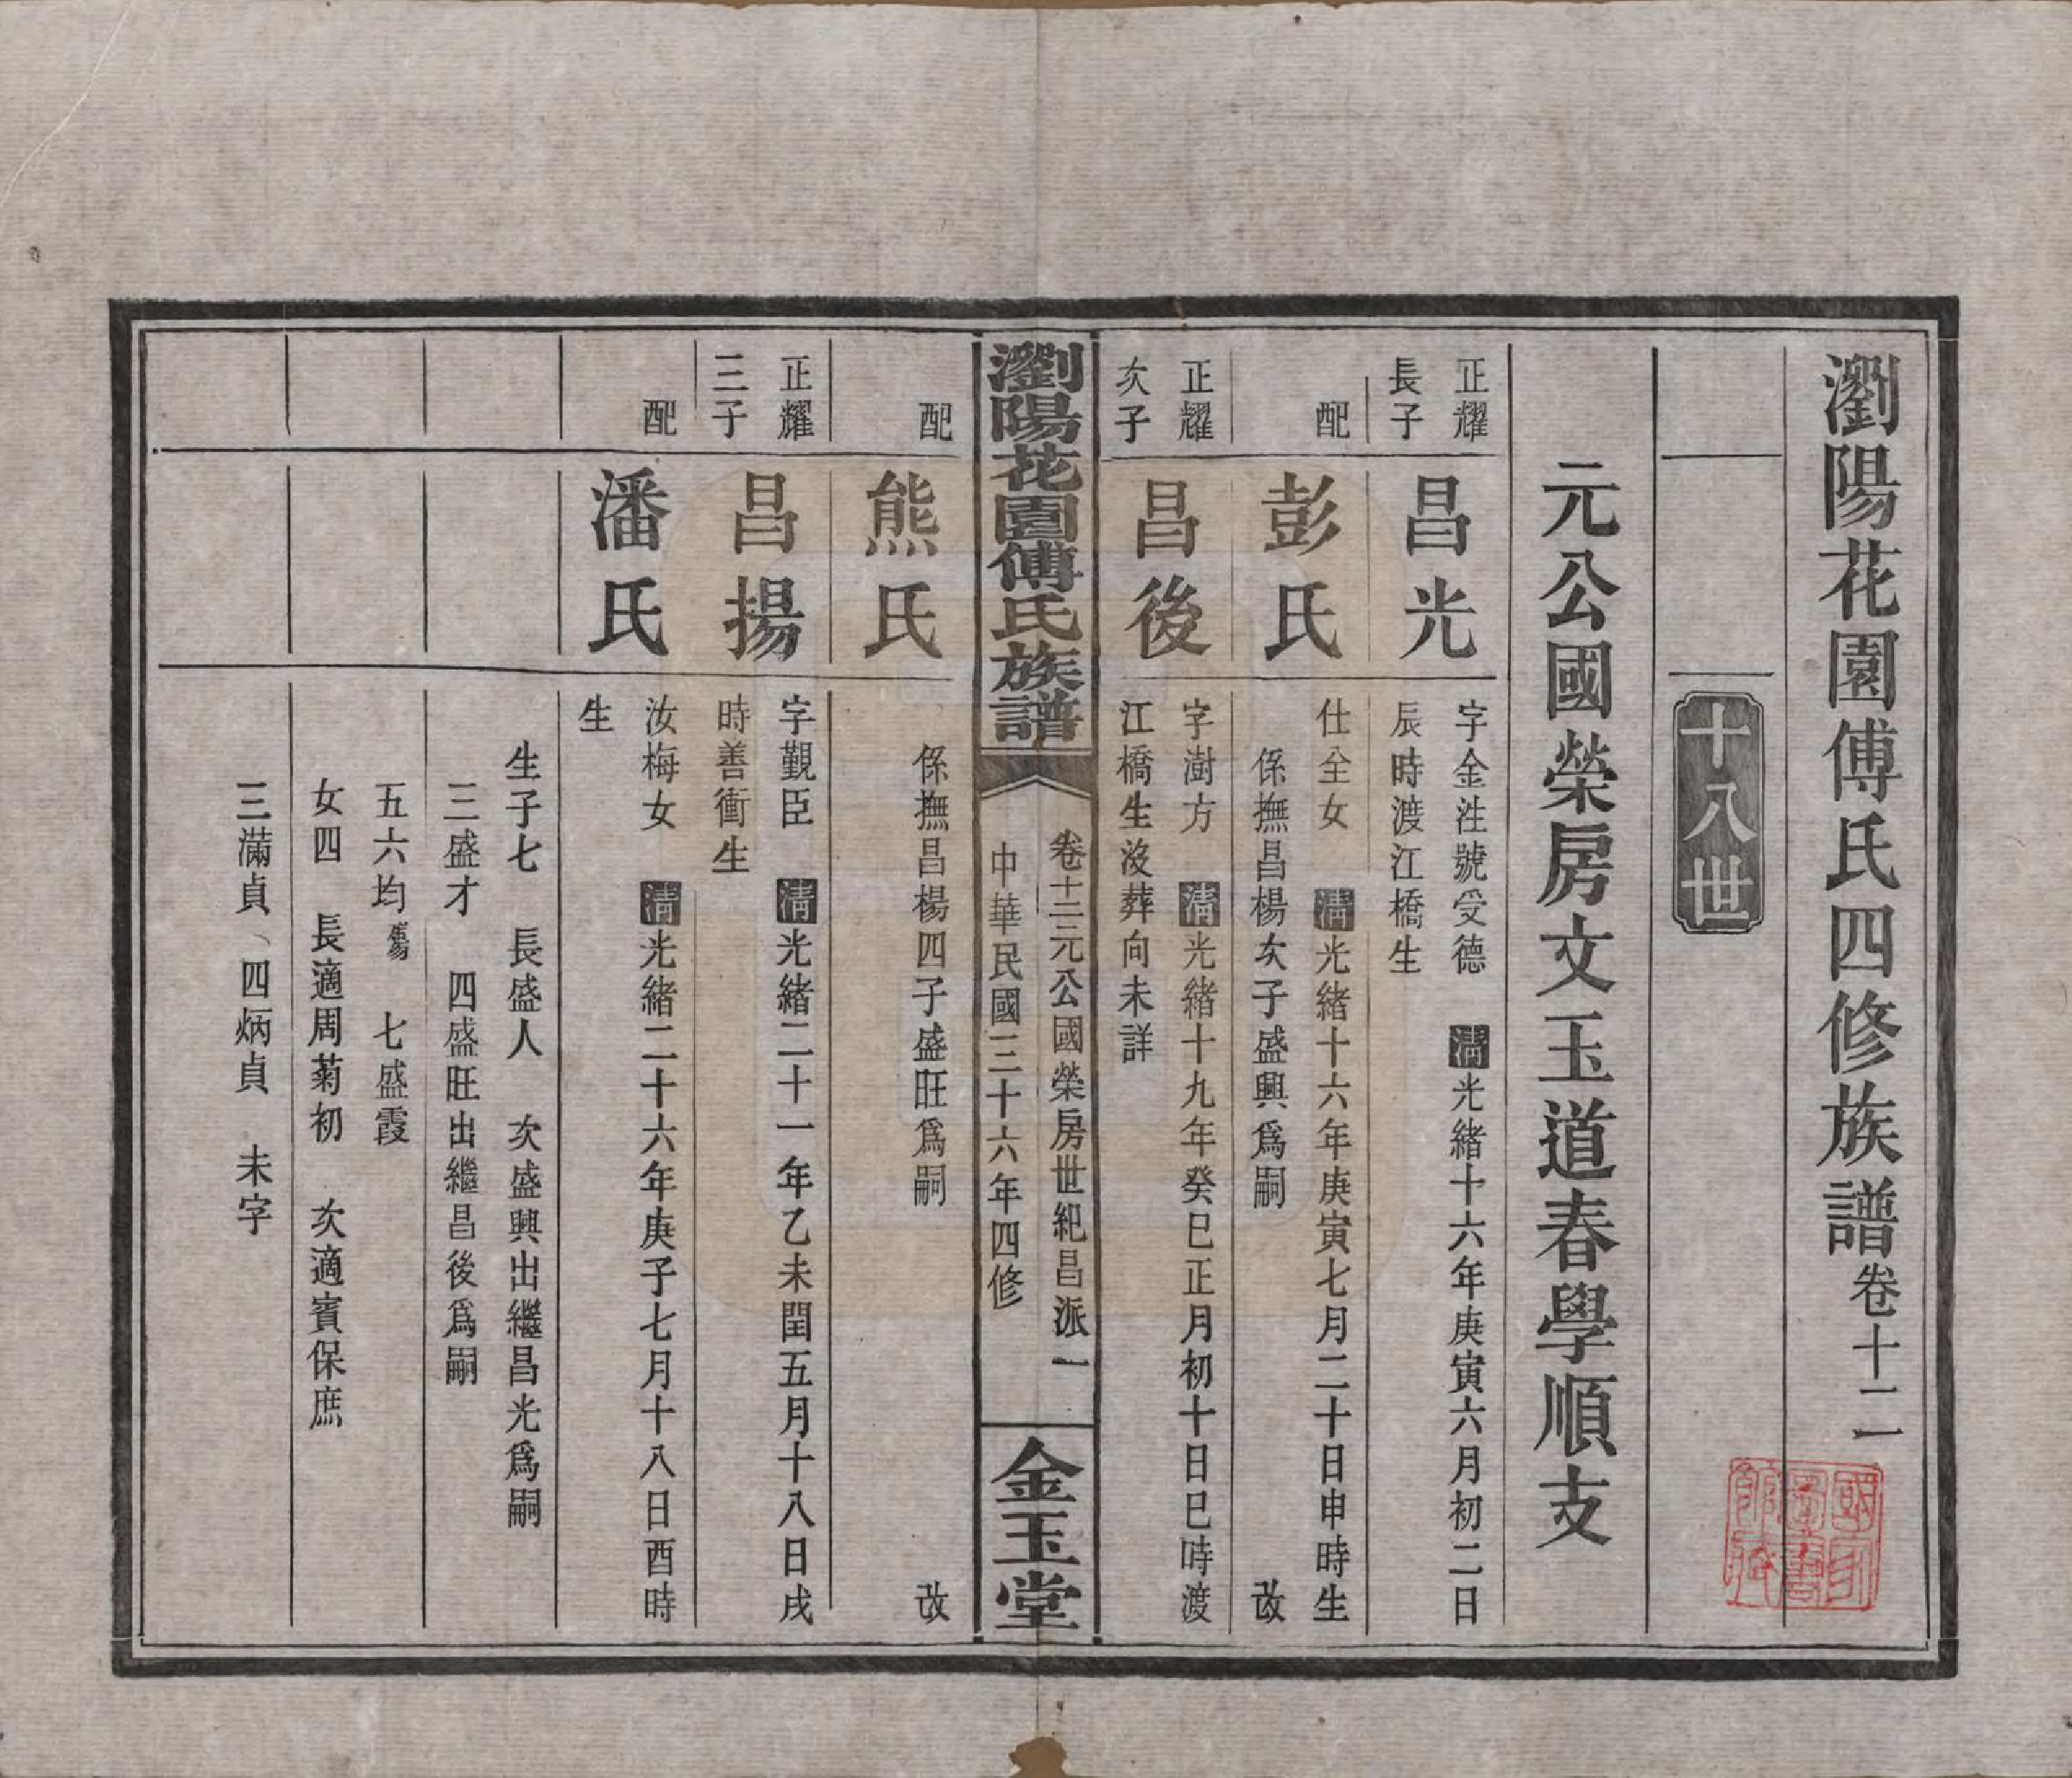 瀏陽花園傅氏四修族譜卷十二
十八世
元公國榮房文玉道春學順支
正耀
長子
昌光
字金注號受德　清光緒十六年庚寅六月初二日
辰時渡江橋生
配
彭氏
仕全女　清光緒十六年庚寅七月二十日申時生
係撫昌楊次子盛興爲嗣　改
正耀
次子
昌後
字澍方　清光緒十九年癸巳正月初十日巳時渡
江橋生沒葬向未詳
瀏陽花園傅氏族譜
卷十二元公國榮房世紀昌派一
中華民國三十六年四修
金玉堂
配
熊氏
係撫昌楊四子盛旺爲嗣　改
正耀
三子
昌揚
字觀臣　清光緒二十一年乙未閏五月十八日戌
時善衝生
配
潘氏
汝梅女　清光緒二十六年庚子七月十八日酉時
生
生子七　長盛人　次盛興出繼昌光爲嗣
三盛才　四盛旺出繼昌後爲嗣
五六均殤　七盛霞
女四　長適周菊初　次適賓保庶
三滿貞、四炳貞　未字